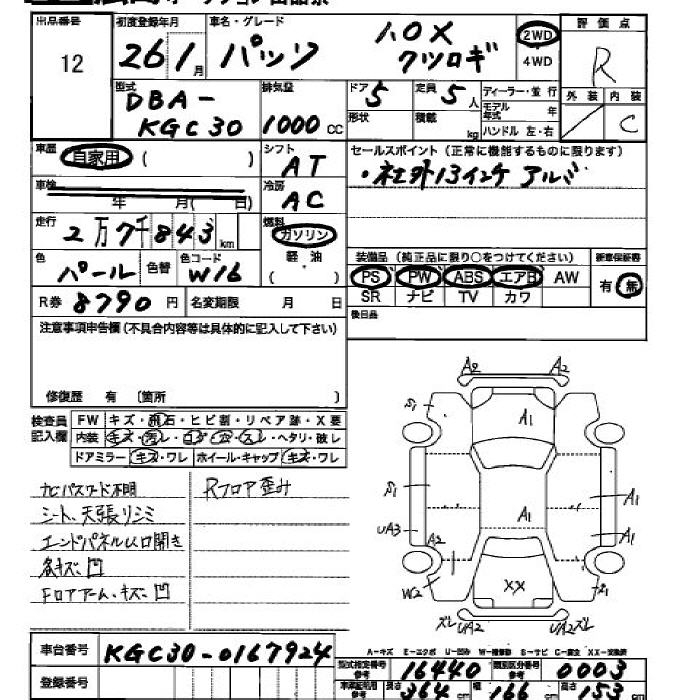 出品番号 12
初度登録年月 26 1月
車名・グレード パッソ 1.0X クツロギ
2WD 4WD
評価点 R
外装 内装 C
型式 DBA-KGC30
排気量 1000cc
ドア 5 定員 5人
形状 積載 kg
ディーラー・並行
モデル年式 年
ハンドル 左・右
車歴 自家用 ( )
シフト AT
セールスポイント (正常に機能するものに限ります)
・社外13インチ アルミ
車検 年 月( 日)
冷房 AC
走行 2万7千843km
燃料 ガソリン 軽油 ( )
色 パール 色替 色コード W16
装備品 (純正品に限り○をつけてください)
新車保証書 有 無
PS PW ABS エアB AW
SR ナビ TV カワ
R券 8790円 名変期限 月 日
後日品
注意事項申告欄 (不具合内容等は具体的に記入して下さい)
修復歴 有 〔箇所 〕
検査員記入欄
FW キズ・飛石・ヒビ割・リペア跡・X要
内装 キズ・汚レ・コゲ・穴・スレ・ヘタリ・破レ
ドアミラー キズ・ワレ ホイール・キャップ キズ・ワレ
ナビパスワード不明
シート、天張リシミ
エンドパネル以口開き
各キズ、凹
Fロアアーム、キズ、凹
Rフロア歪み
A2 A2
S1 A1
S1 A1
UA3 A1 A1
A2
W2 XX S1
ズレ UA2 UA2 ズレ
A-キズ E-エクボ U-凹み W-補修跡 S-サビ C-腐食 XX-交換済
車台番号 KGC30-0167924
登録番号
型式指定番号 参考 16440 類別区分番号 参考 0003
長さ 364cm 幅 166cm 高さ 153cm